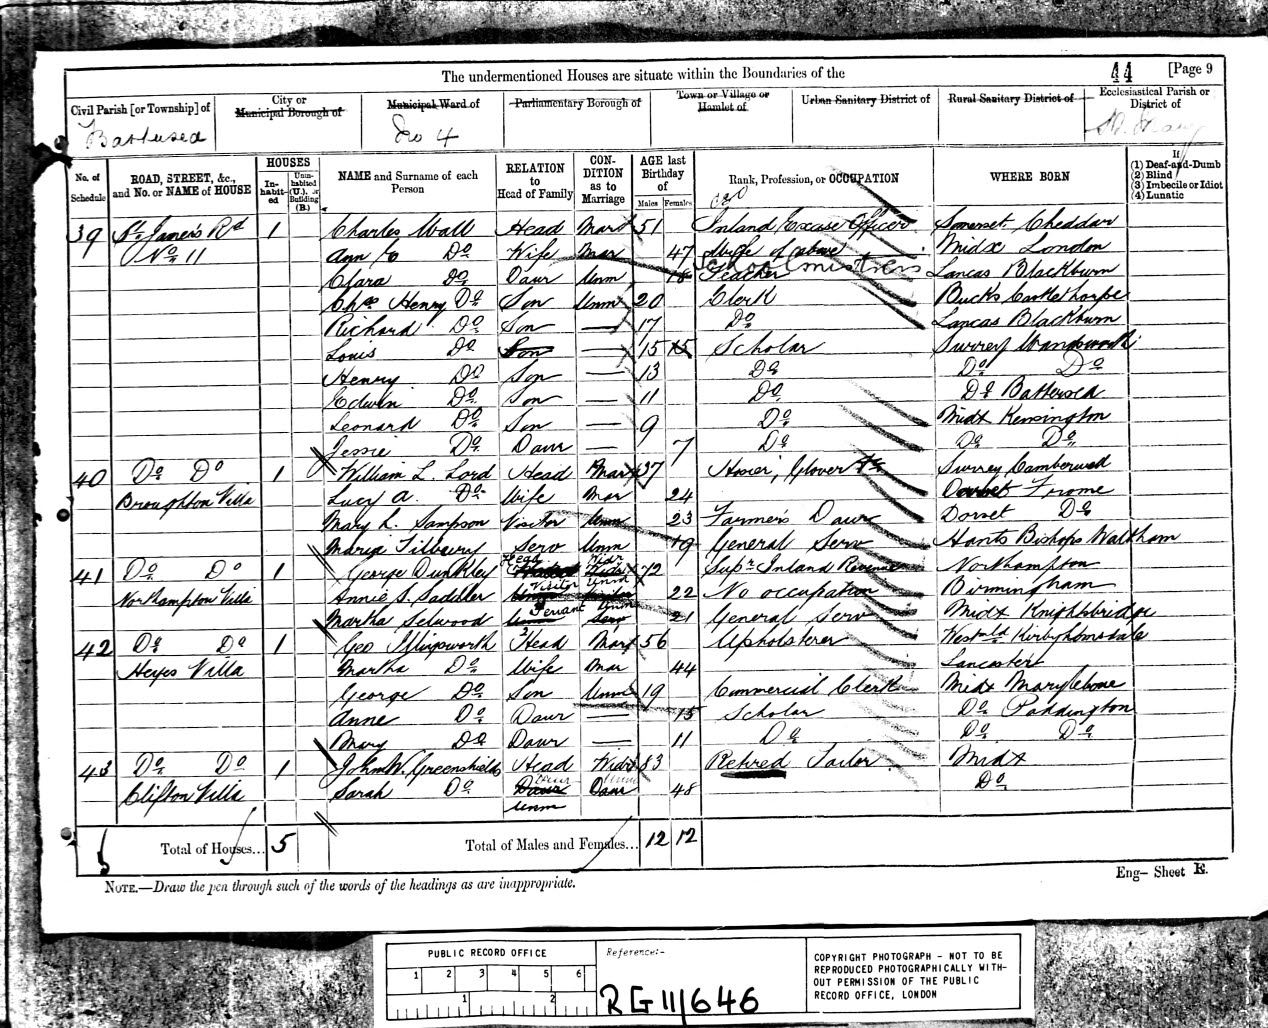 The undermentioned Houses are situate within the Boundaries of the 44 [Page 9
Civil Parish [or Township] of City or Municipal Borough of Municipal Ward of Parliamentary Borough of Town or Village or Hamlet of Urban Sanitary District of Rural Sanitary District of Ecclesiastical Parish or District of
Battersea No 4 St. Mary
No. of Schedule ROAD, STREET, &c., and No. or NAME of HOUSE HOUSES Inhabited Uninhabited (U.), or Building (B.) NAME and Surname of each Person RELATION to Head of Family CONDITION as to Marriage AGE last Birthday of Males Females Rank, Profession, or OCCUPATION WHERE BORN If (1) Deaf-and-Dumb (2) Blind (3) Imbecile or Idiot (4) Lunatic
39 St. James's Rd 1 Charles Wall Head Mar 51 Inland Excise Officer Somerset Cheddar
No 11 Ann Do Wife Mar 47 Wife of above Midx London
Clara Do Daur Unm 18 Teacher Schoolmistress Lancas Blackburn
Chas Henry Do Son Unm 20 Clerk Bucks Castlethorpe
Richard Do Son — 17 Do Lancas Blackburn
Louis Do Son — 15 15 Scholar Surrey Wandsworth
Henry Do Son — 13 Do Do Do
Edwin Do Son — 11 Do Do Battersea
Leonard Do Son — 9 Do Midx Kensington
Jessie Do Daur — 7 Do Do Do
40 Do Do 1 William L. Lord Head Mar 37 Hosier, Glover &c Surrey Camberwell
Broughton Villa Lucy A. Do Wife Mar 24 Frome
Mary L. Sampson Visitor Unm 23 Farmer's Daur Dorset Do
Maria Tilbury Serv Unm 19 General Serv Hants Bishops Waltham
41 Do Do 1 George Dunkley Head Widr 72 Supr Inland Revenue Northampton
Northampton Villa Annie S. Saddler Visitor Unm 22 No occupation Birmingham
Martha Selwood Servant Unm Serv 21 General Serv Midx Knightsbridge
42 Do Do 1 Geo Illingworth Head Mar 56 Upholsterer Westmld Kirbylonsdale
Heyes Villa Martha Do Wife Mar 44 Lancaster
George Do Son Unm 19 Commercial Clerk Midx Marylebone
Anne Do Daur — 15 Scholar Do Paddington
Mary Do Daur — 11 Do Do Do
43 Do Do 1 John W. Greenshields Head Widr 83 Retired Tailor Midx
Clifton Villa Sarah Do Daur Unm Daur 48 Do
Unm
Total of Houses... 5 Total of Males and Females... 12 12
NOTE.—Draw the pen through such of the words of the headings as are inappropriate.
Eng— Sheet E.
PUBLIC RECORD OFFICE
1 2 3 4 5 6
1 2
Reference:-
RG 11/646
COPYRIGHT PHOTOGRAPH - NOT TO BE
REPRODUCED PHOTOGRAPHICALLY WITH-
OUT PERMISSION OF THE PUBLIC
RECORD OFFICE, LONDON